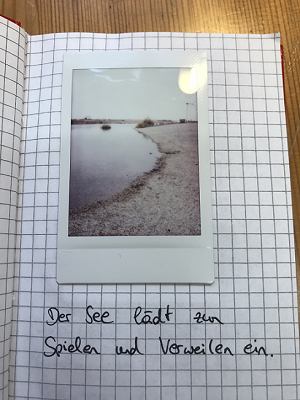 Der See lädt zum
Spielen und Verweilen ein.